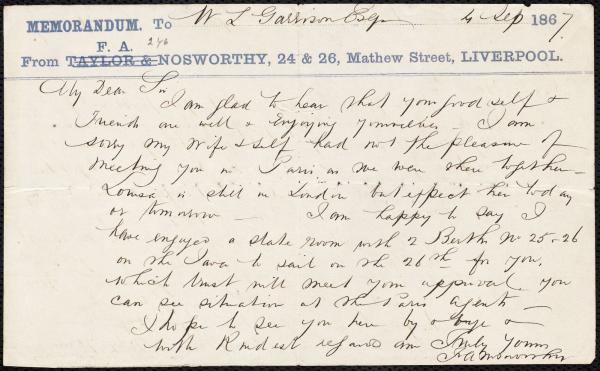 MEMORANDUM. To W L Garrison Esq 4 Sep 1867.
F. A. 246
From TAYLOR & NOSWORTHY, 24 & 26, Mathew Street, LIVERPOOL.
My Dear Sir
I am glad to hear that your good self &
Friends are well & Enjoying yourselves - I am
sorry my Wife & Self had not the pleasure of
meeting you in Paris as we were there together -
Louisa is still in London but expect her to day
or tomorrow - I am happy to say I
have engaged a state room with 2 Berths No 25-26
on the Java to sail on the 26th for you,
which trust will meet your approval. you
can see situation at the Paris agents -
I hope to see you here by &
with Kindest regards am Truly Yours
F A Nosworthy